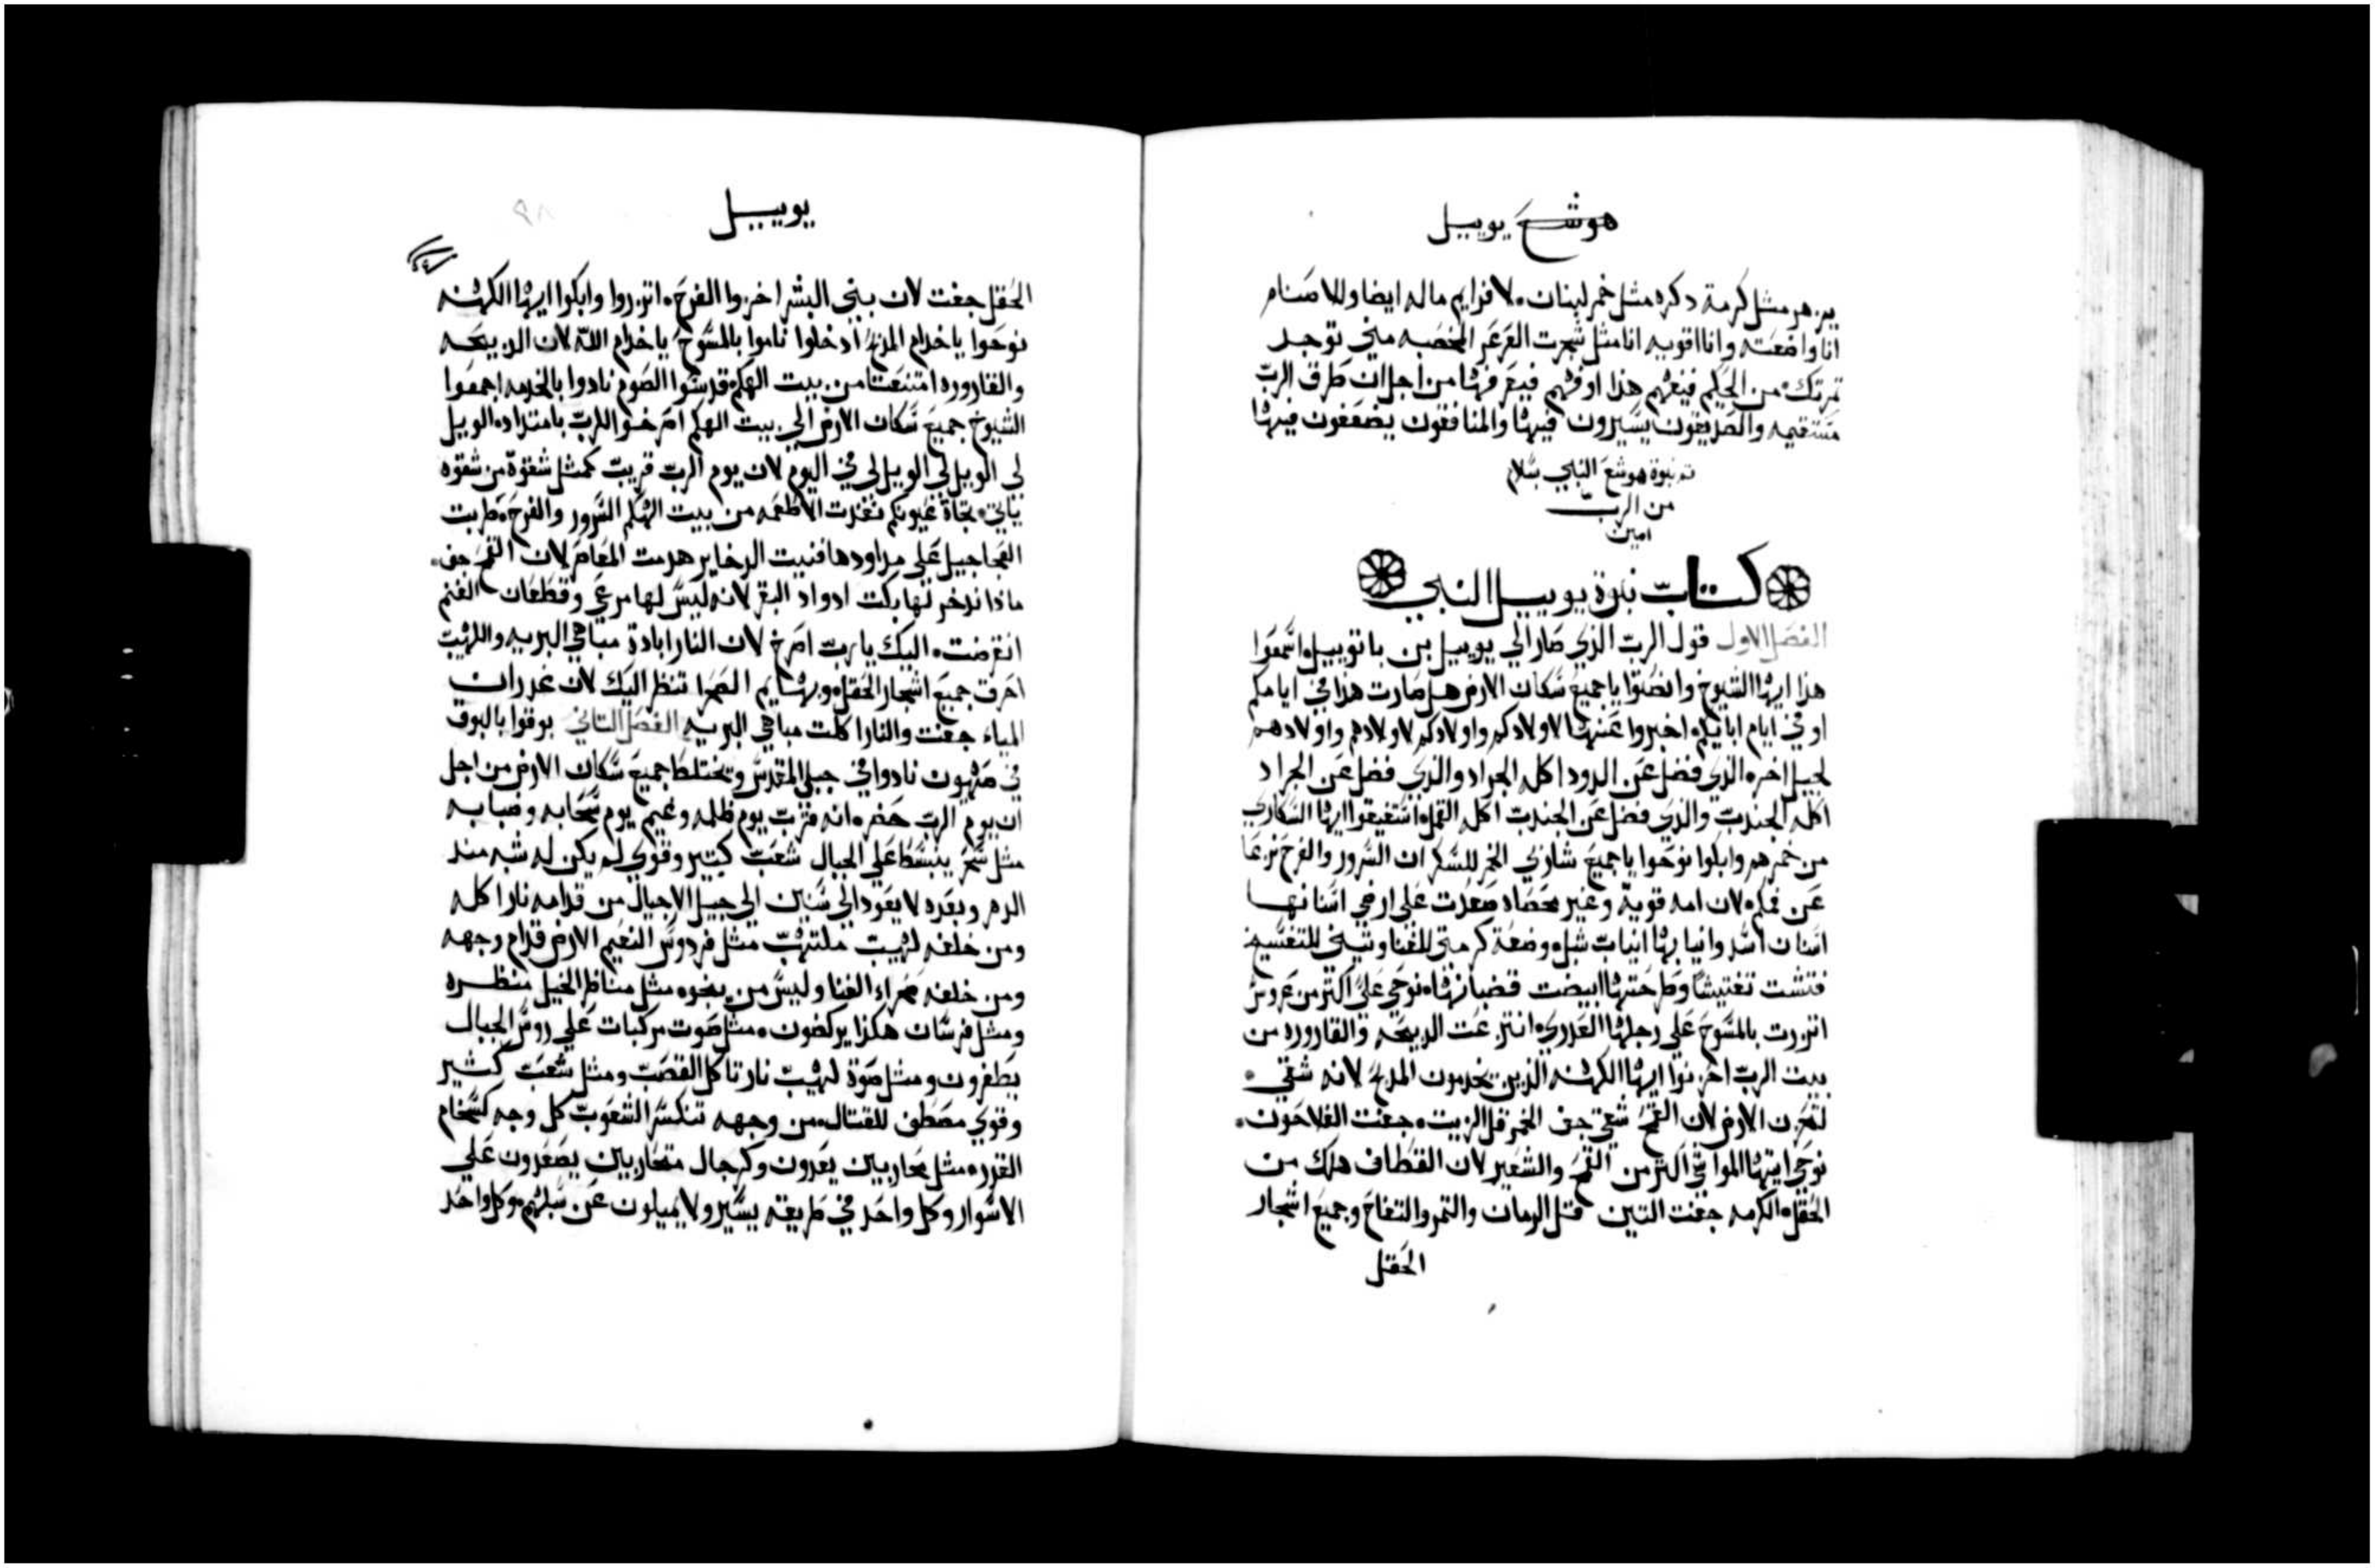 هوشع يوييل
يزهر مثل كرمة دكره مثل خمر لبنان. لافرايم ماله ايضا وللاصنام
انا واضعته وانا اقويه انا مثل شجرت العرعر المخصبه مني توجد
تمرتك. من الحكيم فيفهم هذا او فهم فيعرفها من اجل ان طرق الرب
مستقيمه والصديقون يسيرون فيها والمنافقون يضعفون فيها
تم نبوة هوشع النبي بسلام
من الرب
امين
كتاب نبوة يوييل النبي
الفصل الاول قول الرب الذي صار الي يوييل بن باتوييل. اسمعوا
هذا ايها الشيوخ وانصتوا يا جميع سكان الارض هل صارت هذا في ايامكم
او في ايام ابايكم. اخبروا عنها لاولادكم واولادكم لاولادهم واولادهم
لجيل اخر. الذي فضل عن الدود اكله الجراد والذي فضل عن الجراد
اكله الجندب والذي فضل عن الجندب اكله القمل. استفيقوا ايها السكاري
من خمرهم وابكوا نوحوا يا جميع شاربي الخمر للسكر ان السرور والفرح نزعا
عن فمكم. لان امه قوية وغير محصاه صعدت علي ارضي اسنانها
اسنان اسد وانيابها انياب شبل. وضعة كرمتي للفنا وتيني للتفسيخ
فتشت تفتيشا وطرحتها ابيضت قضبانها. نوحي علي اكتر من عروس
اتزرت بالمسوح علي رجلها العدري. انتزعت الدبيحه والقاروره من
بيت الرب احزنوا ايها الكهنه الذين يخدمون المدبح لانه شقي.
لتحزن الارض لان القمح شقي جف الخمر قل الزيت. جفت الفلاحون.
نوحي ايتها المواشي اكتر من القمح والشعير لان القطاف هلك من
الحقل. الكرمه جفت التين قتل الرمان والتمر والتفاح وجميع اشجار
الحقل
يوييل
الحقل جفت لان بيني البشر اخزوا الفرح. اتزروا وابكوا ايها الكهنه
نوحوا يا خدام المدبح ادخلوا ناموا بالمسوح يا خدام الله لان الدبيحه
والقاروره امتنعتا من بيت الهكم. قدسوا الصوم نادوا بالخدمه اجمعوا
الشيوخ جميع سكان الارض الي بيت الهكم اصرخوا للرب بامتداد. الويل
لي الويل لي الويل لي في اليوم لان يوم الرب قريب كمثل شقوة من شقوه
ياتي. تجاة عيونكم نفدت الاطعمه من بيت الهكم السرور والفرح. طربت
العجاجيل علي مداودها فنيت الدخاير هدمت المعاصر لان القمح جف.
ماذا ندخر لها بكت ادواد البقر لانه ليس لها مرعي وقطعان الغنم
انقرضت. اليك يا رب اصرخ لان النار ابادة مباهي البريه واللهيب
احرق جميع اشجار الحقل. وبهايم الصحرا تنظر اليك لان غدران
المياه جفت والنار اكلت مباهي البريه الفصل التاني بوقوا بالبوق
في صهيون نادوا في جبلي المقدس ويختلط جميع سكان الارض من اجل
ان يوم الرب حضر. انه قرب يوم ظلمه وغيم يوم سحابه وضبابه
مثل سحر ينبسط علي الجبال شعب كتير وقوي لم يكن له شبه مند
الدهر وبعده لا يعود الي سنين الي جيل الاجيال من قدامه نار اكله
ومن خلفه لهيب ملتهب مثل فردوس النعيم الارض قدام وجهه
ومن خلفه صحراء الفنا وليس من ينجوه مثل مناظر الخيل منظره
ومثل فرسان هكذا يركضون. مثل صوت مركبات علي روس الجبال
يطفرون ومثل صوة لهيب نار تاكل القصب ومثل شعب كثير
وقوي مصطف للقتال. من وجهه تنكسر الشعوب كل وجه كسخام
القدره مثل محاربين يعدون وكرجال متحاربين يصعدون علي
الاسوار وكل واحد في طريقه يسير ولا يميلون عن سبلهم. وكل واحد